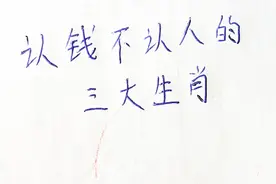 认钱不认人的
三大生肖